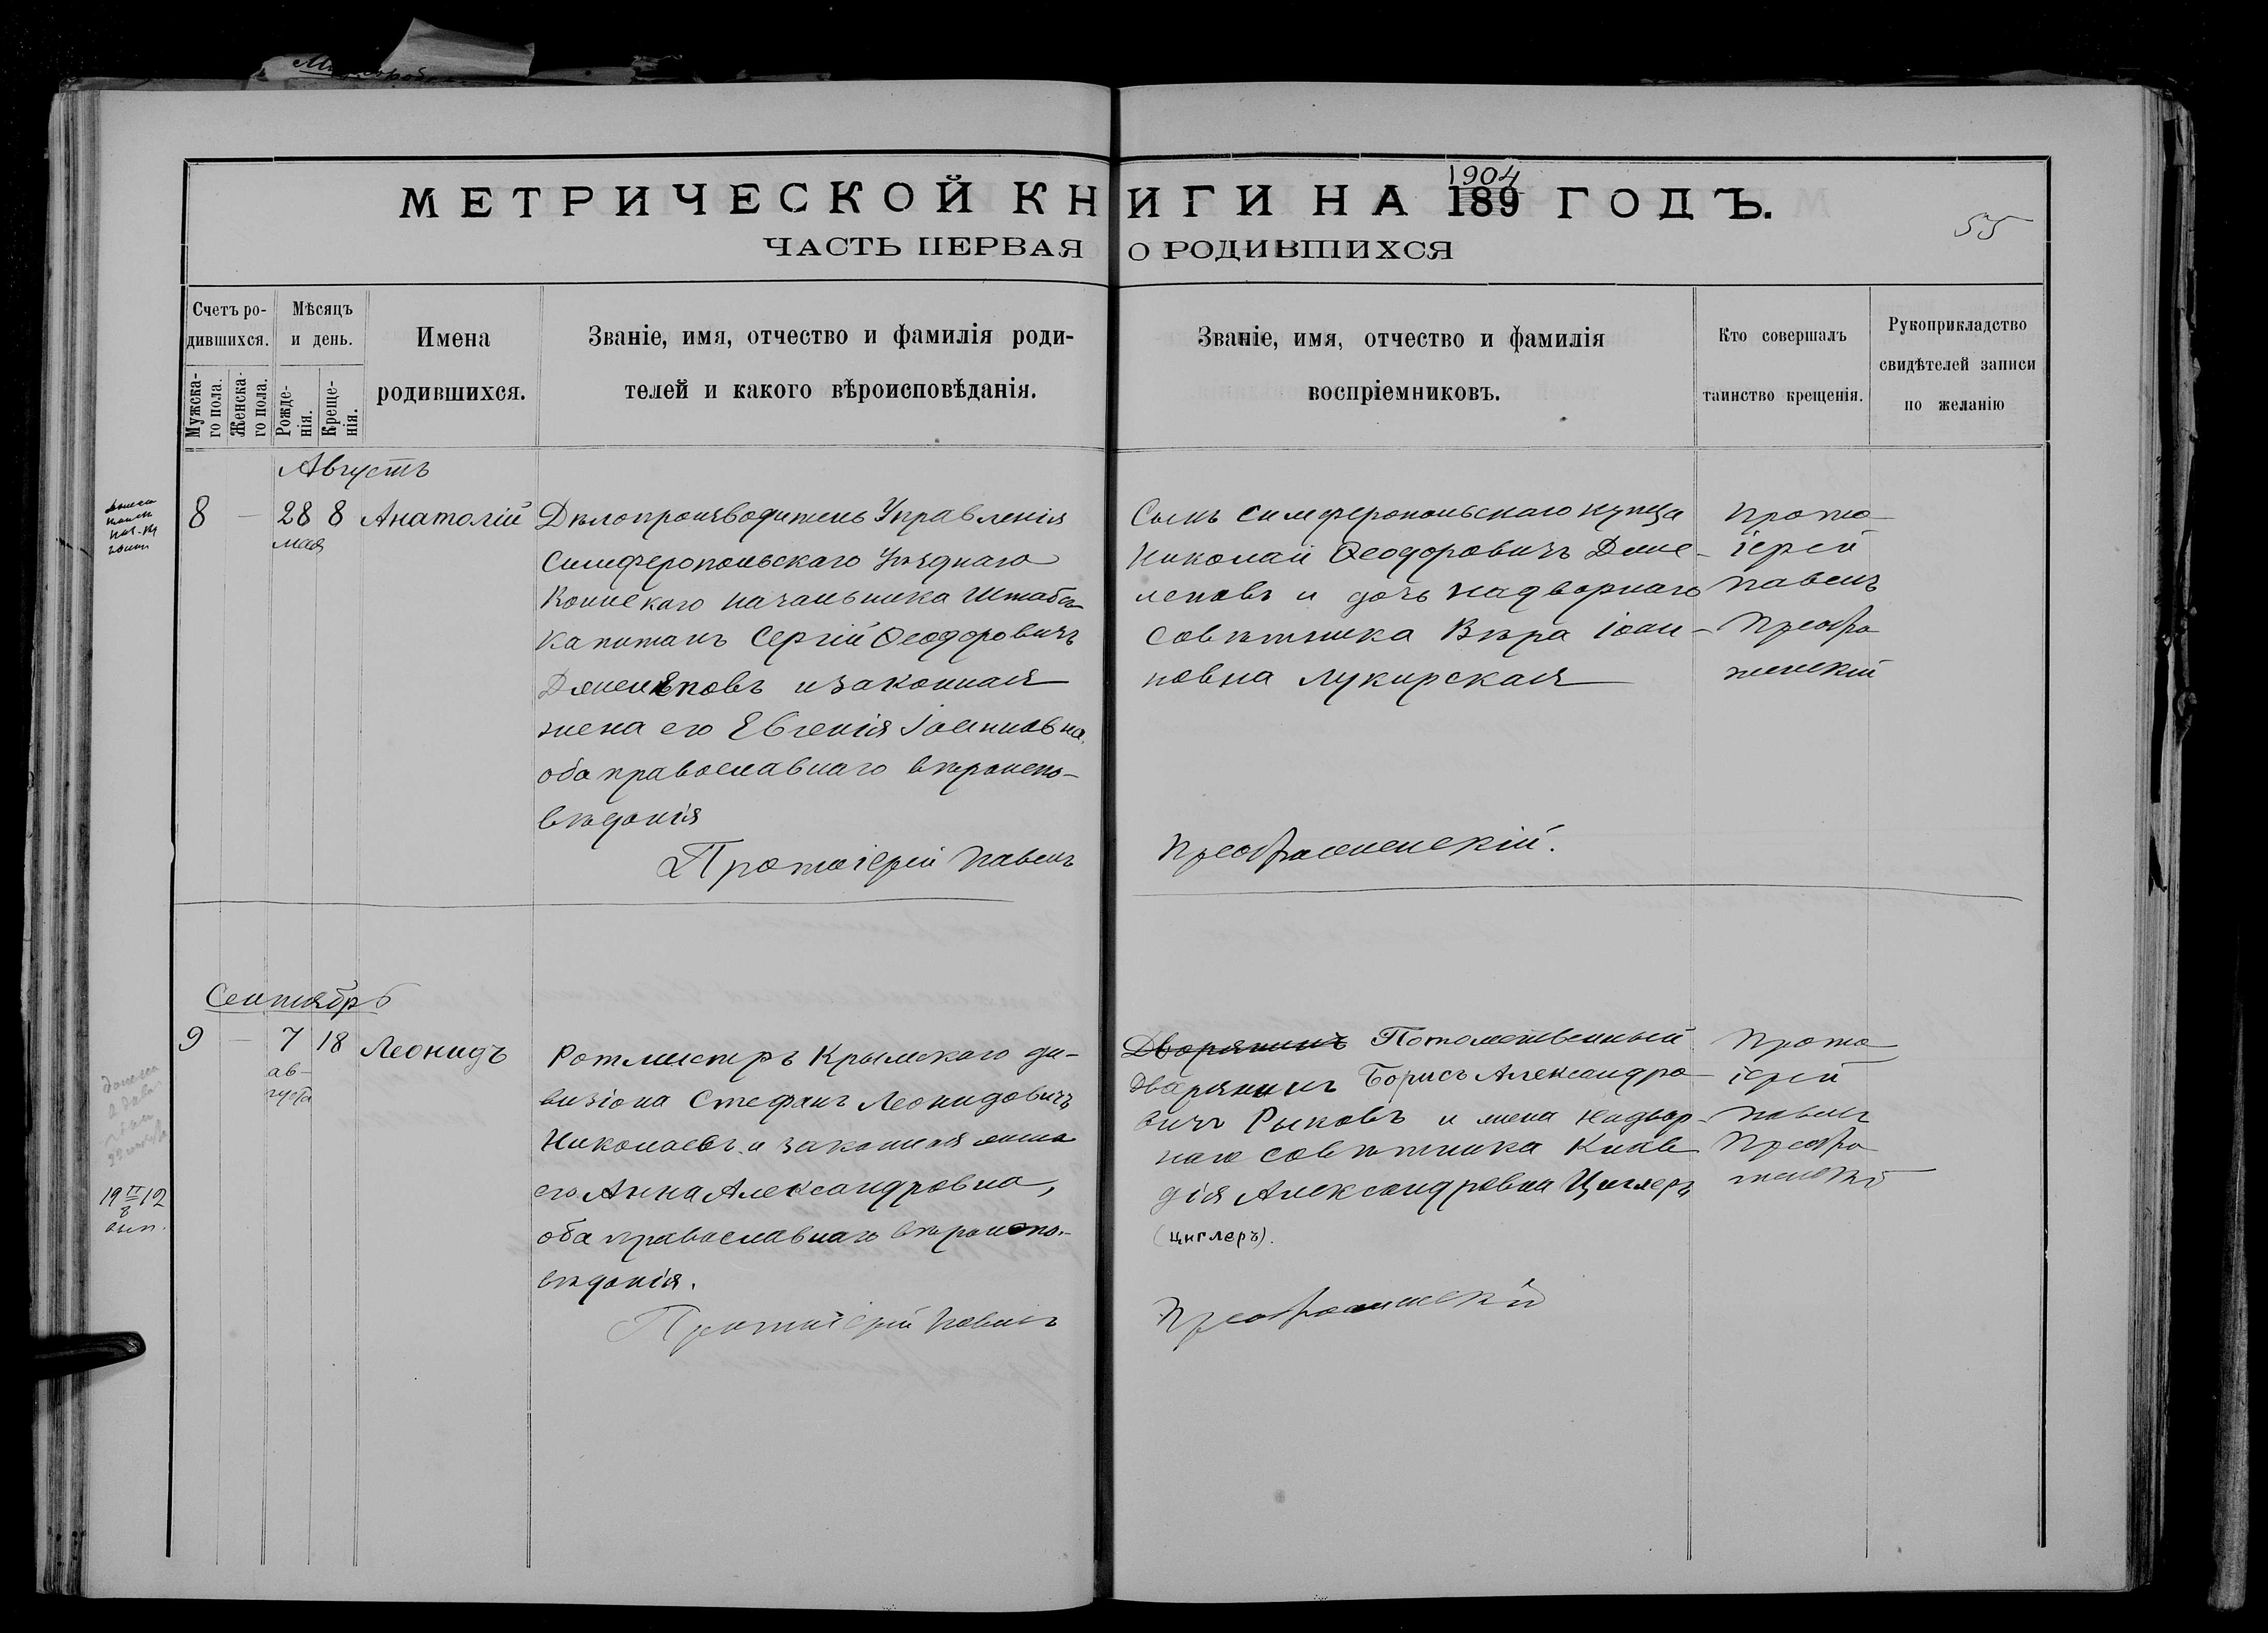 МЕТРИЧЕСКОЙ КНИГИ НА 189 ГОДЪ.
1904
55
ЧАСТЬ ПЕРВАЯ О РОДИВШИХСЯ
Счетъ ро-
дившихся.
Мужска-
го пола.
Женска-
го пола.
Мѣсяцъ
и день.
Рожде-
нія.
Креще-
нія.
Имена
родившихся.
Званіе, имя, отчество и фамилія роди-
телей и какого вѣроисповѣданія.
Званіе, имя, отчество и фамилія
воспріемниковъ.
Кто совершалъ
таинство крещенія.
Рукоприкладство
свидѣтелей записи
по желанію
Августъ
8 — 28 8 Анатолій
мая
Дѣлопроизводитель Управленія
Симферопольскаго Уѣзднаго
Воинскаго Начальника Штабсъ
Капитанъ Сергій Ѳеодоровичъ
и законная
жена его Евгенія Іоанновна,
оба православнаго вѣроиспо-
вѣданія
Протоіерей Павелъ
Преображенскій.
Сынъ Симферопольскаго купца
Николай Ѳеодоровичъ
и дочь надворнаго
Совѣтника Вѣра Іоан-
новна Лукирская
Прото
іерей
Павелъ
Преобра
женскій
Сентябрь
9 — 7 18 Леонидъ
ав-
густа
Ротмистръ Крымскаго ди-
визіона Стефанъ Леонидовичъ
Николаевъ и законная жена
его Анна Александровна,
оба православнаго вѣроиспо-
вѣданія.
Протоіерей Павелъ
Преображенскій
Дворянинъ Потомственный
Дворянинъ Борисъ Александро
вичъ Рыковъ и жена Надвор-
наго совѣтника Клав
дія Александровна Циглеръ
(Циглеръ).
Прото
іерей
Павелъ
Преобра
женскій
19 IV/8 12
вып.